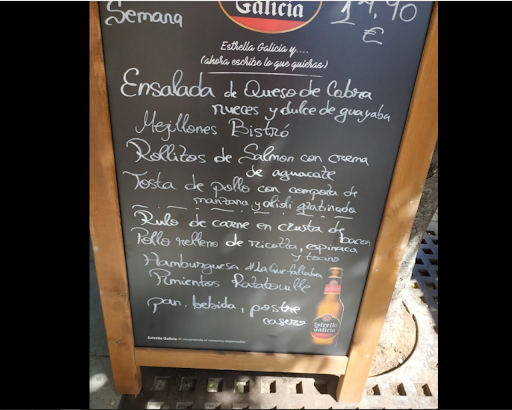 Semana
Galicia
1
,90
€
Estrella Galicia y....
(ahora escribe lo que quieras)
Ensalada de Queso de Cabra
nueces y dulce de guayaba
Mejillones Bistró
Rollitos de Salmon con crema
de aguacate
Tosta de pollo con compota de
manzana y alioli gratinado
Rulo de carne en crusta de
bacon
Pollo relleno de ricotta, espinaca
y tocino
Hamburguesa #LaQueFaltaba
Pimientos Ratatouille
pan, bebida, postre
casero
Estrella
Galicia
Estrella Galicia